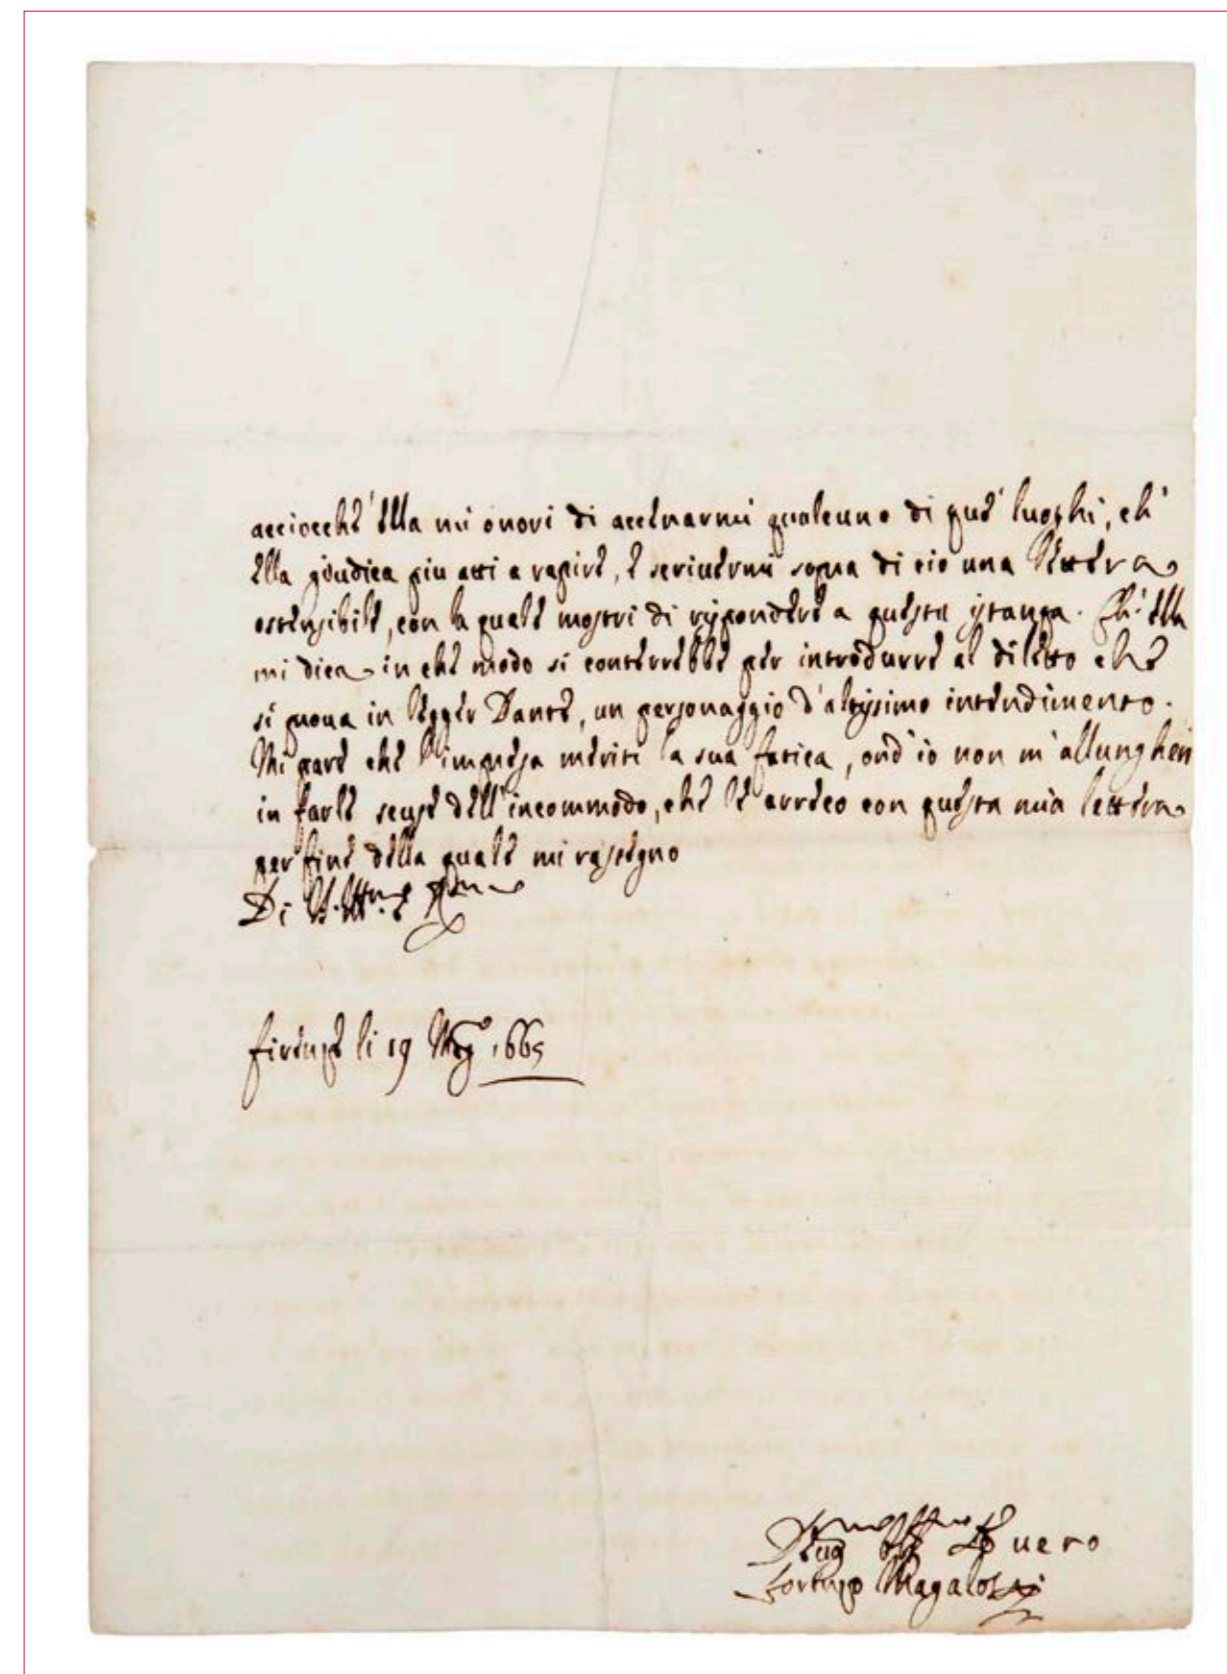 acciocche' ella mi onori di accennarmi qualcuno di que' luoghi, ch'
ella giudica piu atti a rapire, e scriuermi sopra di cio una lettera
ostensibile, con la quale mostri di rispondere a questa istanza. Ch' ella
mi dica in che modo si conterrebbe per introdurre al diletto che
si proua in legger Dante, un personaggio d'altissimo intendimento.
Mi pare che l'impresa meriti la sua fatica, ond' io non m'allungherò
in farle scuse dell'incommodo, che le arreco con questa mia lettera
per fine della quale mi rassegno
Di V.
Firenze li 19 Mag.o 1665
uero
Lorenzo Magalotti